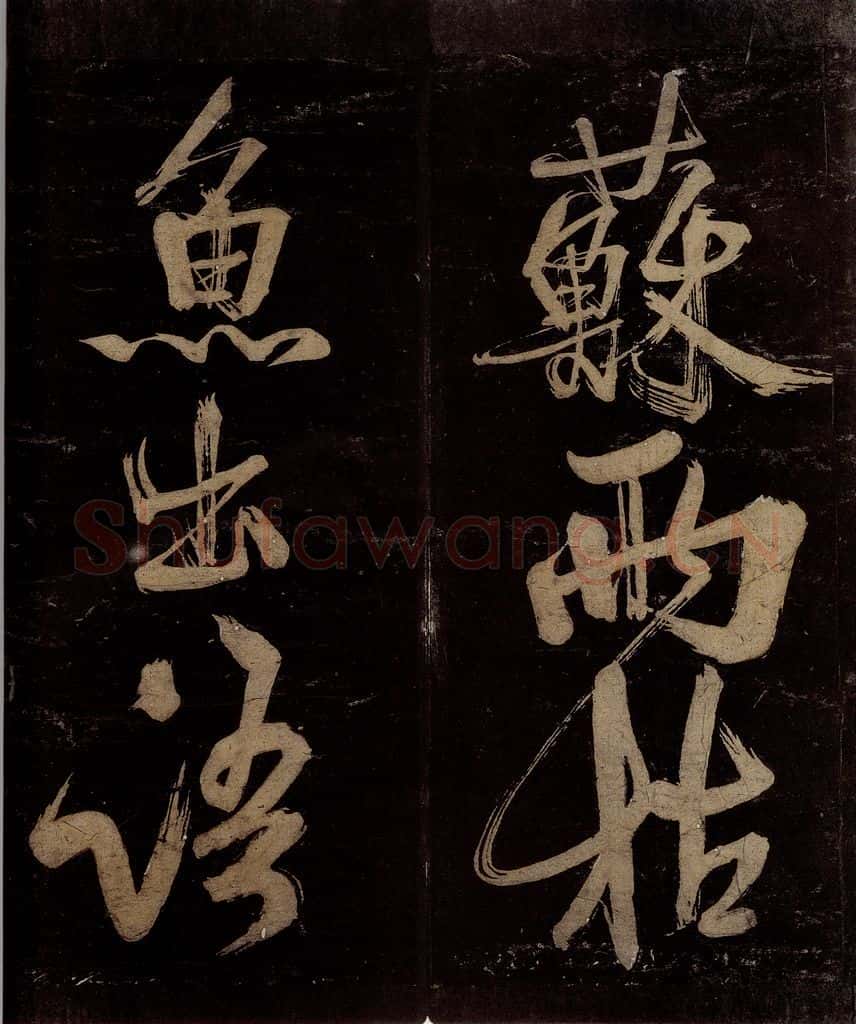 蘇兩枯
魚出語
Shufawang.CN